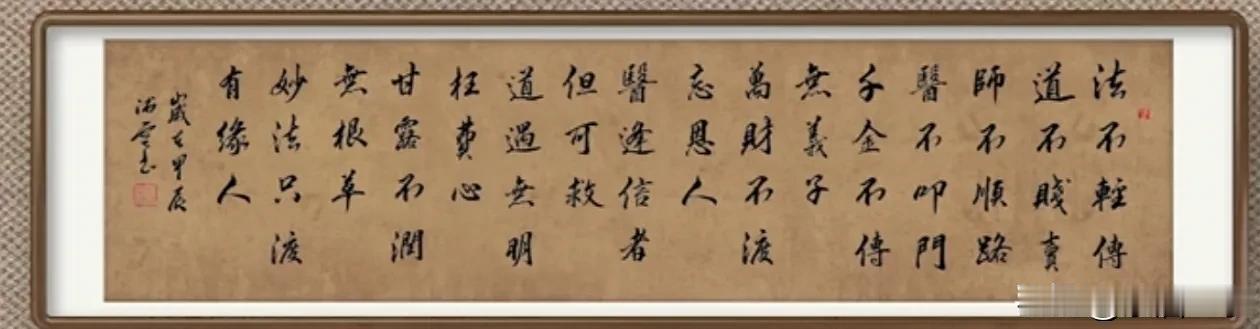 法不輕傳
道不賤賣
師不順路
醫不叩門
千金不傳
無義子
萬財不渡
忘恩人
醫逢信者
但可救
道遇無明
枉費心
甘露不潤
無根草
妙法只渡
有緣人
歲在甲辰